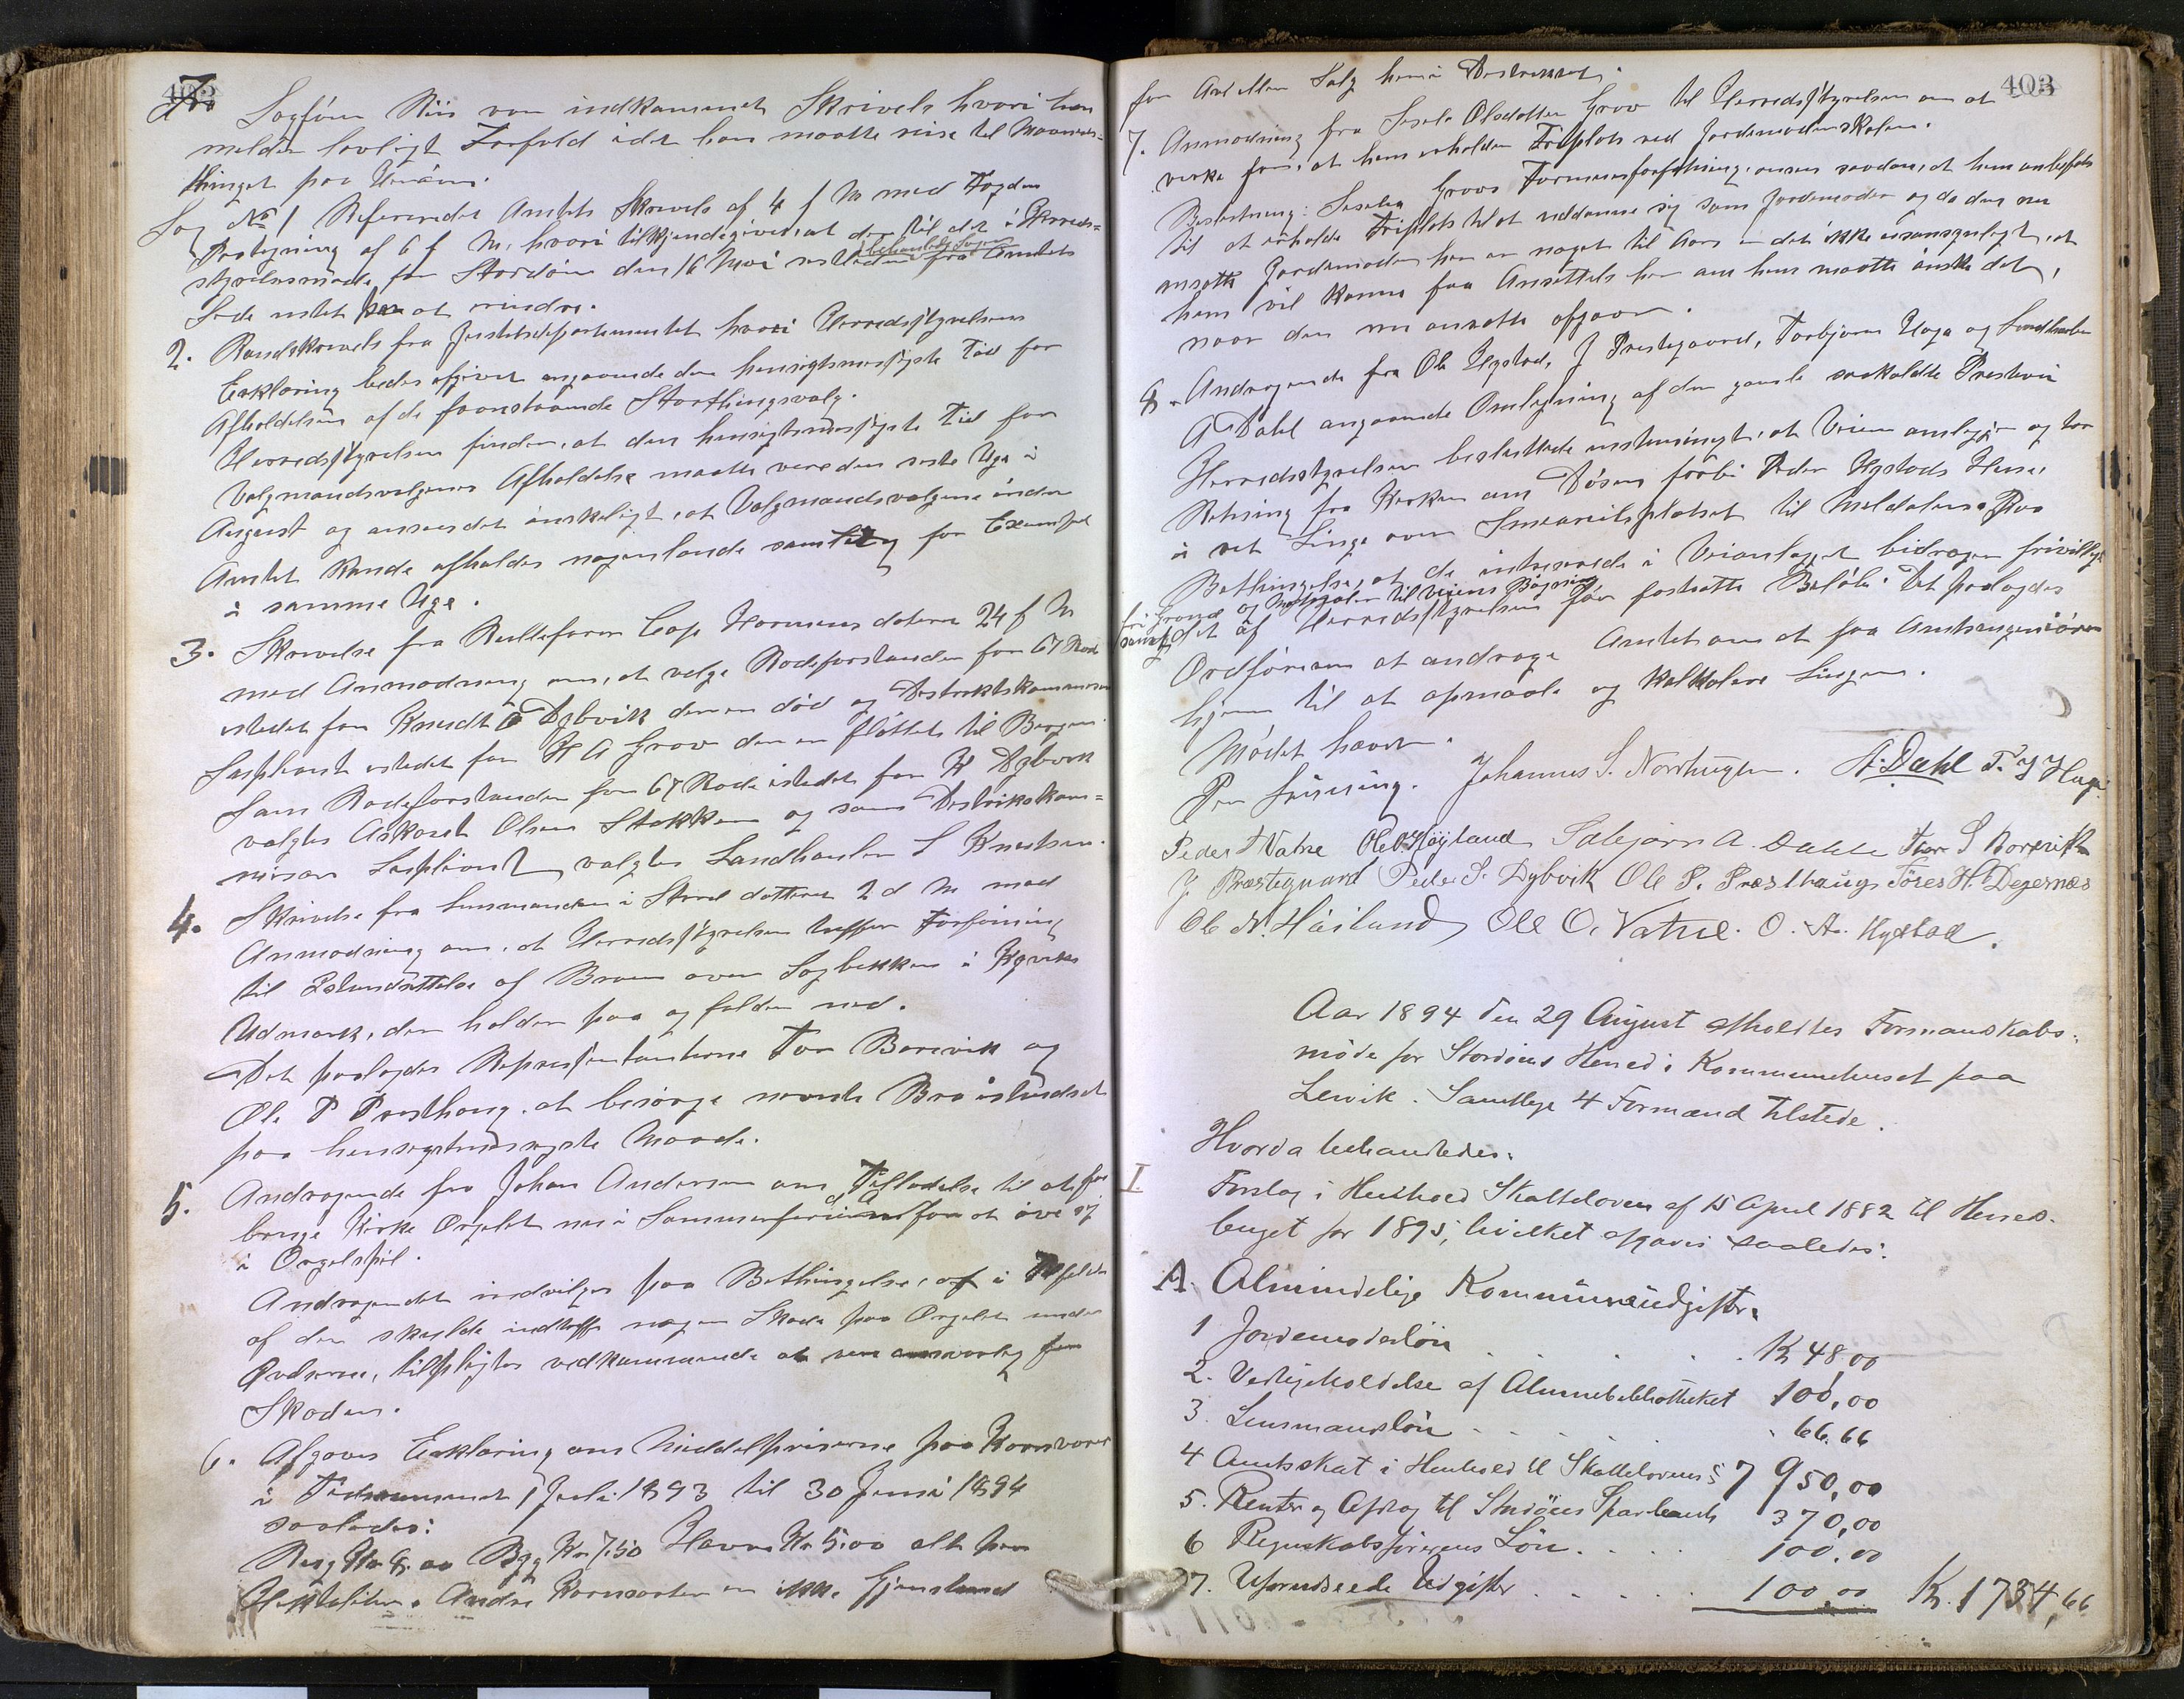 403
Fra Sagfører Riis var indkommet Skrivels hvori han
melder lovligt Forfald idet han maatte reise til
thinget paa
Sag No 1 Refereredes Amtets Skrivels af 4 f M med Fogdens
Pategning af 6 f M, hvori tilkjendegives, at der til de i Herreds-
styrelsesmøde for Stordøen den 16 Mai behandlede Sager fra Amtets
Side intet har at erindre.
2. Rundskrivels fra Justitsdepartementet hvori Herredsstyrelsens
Erklæring bedes afgivet angaaende den hensigtsmæssigste Tid for
Afholdelsen af de forestaaende Storthingsvalg.
Herredsstyrelsen finder, at den hensigtsmæssigste Tid for
Valgmandsvalgenes Afholdelse maatte være den siste Uge i
August og ansees det ønskeligt, at Valgmandsvalgene inden
Amtet kunde afholdes nogenlunde samtidig for Exempel
i samme Uge.
3. Skrivelse fra Rullefører Cap Hormann dateret 24 f M
med Anmodning om, at vælge Rodeforstander for 67 Rode
istedet for Knudt Dybvik der er død og Distriktskommissær
Suppleant istedet for H A Grov der er flöttet til Bergen.
Som Rodeforstander for 67 Rode istedet for K Dybvik
valgtes Olsen Stokken og som Distriktskom-
missær Suppleant valgtes Landhandler S Knutsen.
4. Skrivelse fra Lensmanden i Stord datteret 2 d M med
Anmodning om, at Herredsstyrelsen træffer Forföining
til Istandsættelse af Broen over Sagbekken i
Udmark, der holder paa og falder ned.
Det paalagdes Repræsentanterne Tor Borevik og
Ole P Presthaug, at besörge nævnte Bro istandsat
paa hensigtsmæssigste Maade.
5. Andragende fra Johan Andersen om Tilladelse til at faa
bruge Kirke Orgelet nu i Sommerferien for at öve sig
i Orgelspil.
Andragendet indvilges paa Bethingelse, af i Tilfælde
af der skulde indtreffe nogen Skade paa Orgelet under
Øvelserne, tilpligtes vedkommende at være ansvarlig for
Skaden.
6. Afgaves Erklæring om Middelpriserne paa Kornvarer
i Tidsrummet 1 Juli 1893 til 30 Juni 1894
saaledes:
Rug Kr 8.00 Byg Kr 7.50 Havre Kr 5.00 alt per
Hektoliter. Andre Kornsorter er ikke Gjenstand
403
for Avl eller Salg her i Distriktet.
7. Anmodning fra Sesela Olsdatter Grov til Herredsstyrelsen om at
virke for, at hun erholder Friplads ved Jordemoderskolen.
Beslutning: Sesela Grovs Formuesforfatning ansees saadan, at hun anbefales
til at erholde Friplads til at uddanne sig som Jordemoder og da den nu
ansatte Jordemoder her er noget til Aars er det ikke usandsynligt, at
hun vil kunne faa Ansettels her om hun maatte önske det,
naar den nu ansatte afgaar.
8. Andragende fra Ole Hystad, J Prestegaard, Torbjörn Haga og Landhandler
A Dahl angaaende Omlægning af den gamle saakaldte Prestevei
Herredsstyrelsen besluttede enstemmigt, at Veien omlægges og tar
Retning fra Kirken om Dösen forbi Peder Hystads Huse,
i ret Linje over til Meldalen. Paa
Bethingelse, at de interesserede i Veianlægget bidrager frivilligt
fri Grund og Materialer til Veiens Bygning
samt det af Herredsstyrelsen för fastsatte Belöb. Det paalagdes
Ordføreren at andrage Amtet om at faa Amtsingeniøren
hjem til at opmaale og kalkulere Linjen.
Mödet hævet.
Per Johannes S. Nordhuglen. A. Dahl T. J Haga
Peder T Vatne Ole O. Høyland Sæbjørn A. Dahle Thore S Borevik
J. Prestegaard Peder S. Dybvik Ole P. Præsthaug Töres H. Degernæs
Ole N. Höiland Ole O. Vatne. O. A. Hystad.
Aar 1894 den 29 August afholdtes Formandskabs-
möde for Stordöens Herred i Kommunehuset paa
Lervik. Samtlige 4 Formænd tilstede.
Hvorda behandledes.
I Forslag i Henhold Skatteloven af 15 April 1882 til Herreds-
buget for 1895, hvilket afgaves saaledes:
A. Almindelige Kommuneudgifter.
1 Jordemoderlön . . . . . Kr 48,00
2. Vedligeholdelse af Almuebibliotheket 100,00
3. Lensmandslön . . . . . 66.66
4 Amtsskat i Henhold til Skattelovens § 7 950,00
5. Renter og Afdrag til Stordöens Sparebank 370,00
6 Regnskabsförerens Lön . . . . 100.00
7. Uforudseede Udgifter . . . . 100,00 Kr. 1734,66